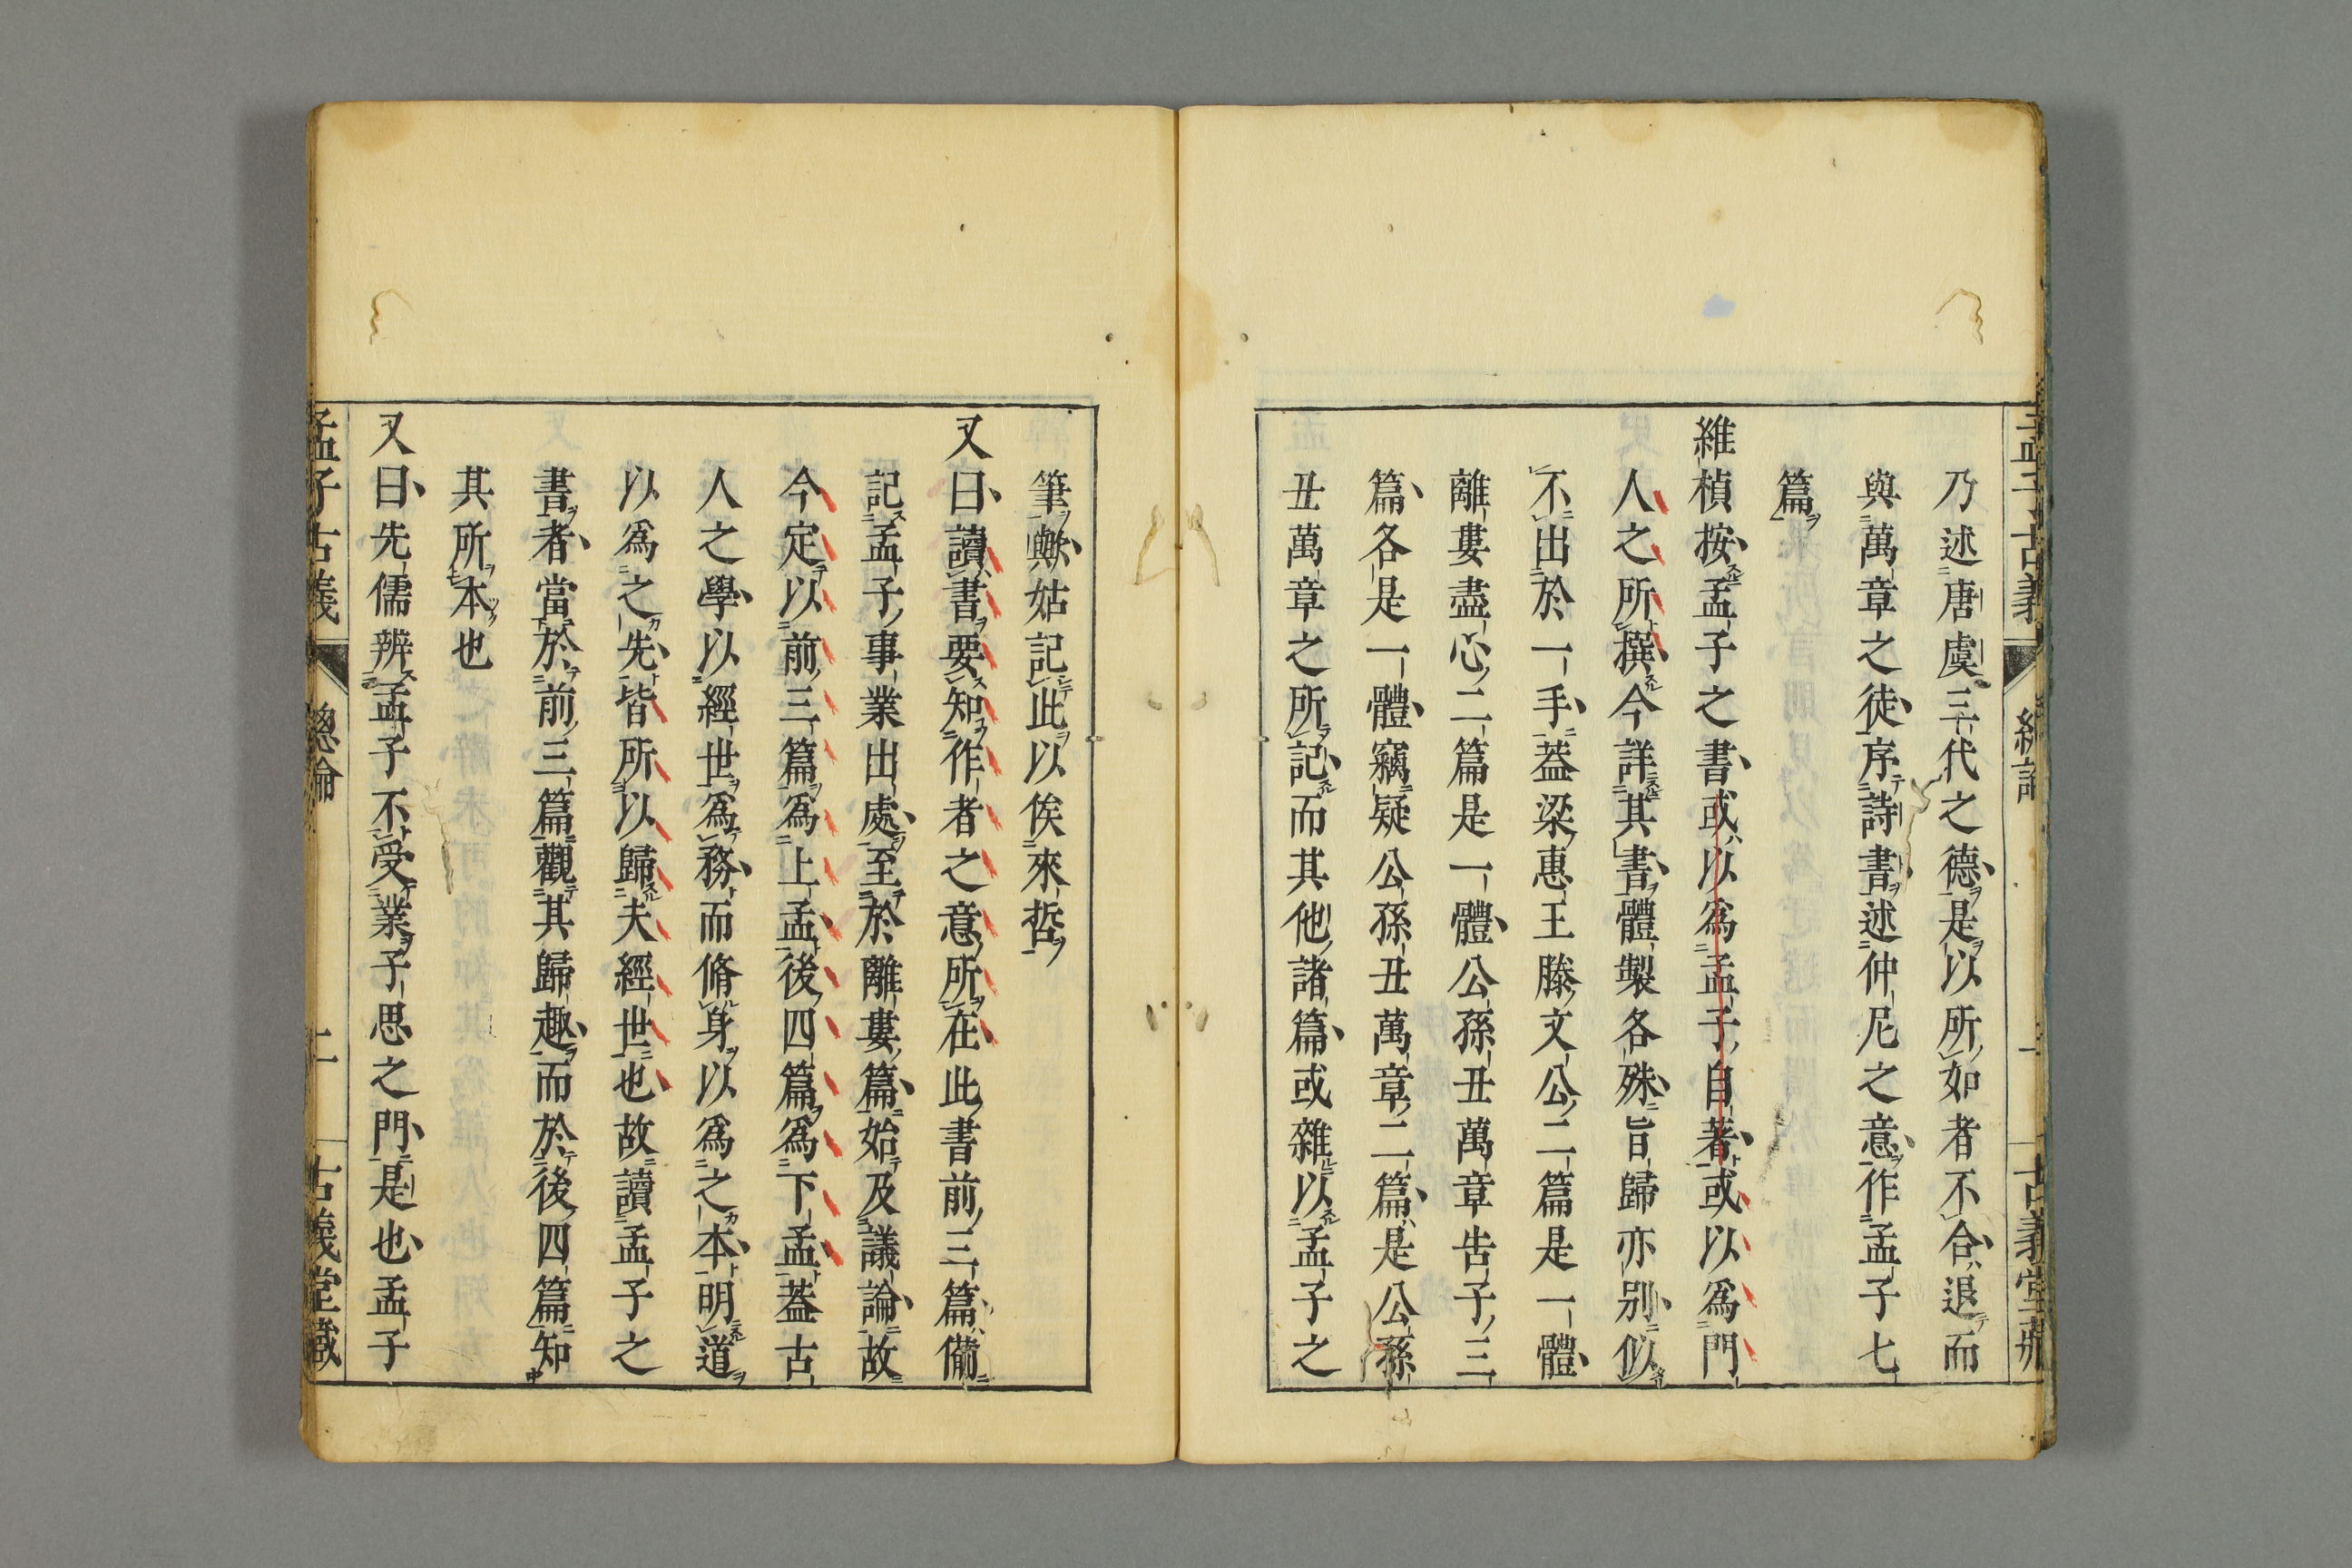 乃述唐虞三代之德是以所如者不合退而
與萬章之徒序詩書述仲尼之意作孟子七
篇
維楨按孟子之書或以爲孟子自著或以爲門
人之所撰今詳其書體製各殊旨歸亦別似
不出於一手蓋梁惠王滕文公二篇是一體
離婁盡心二篇是一體公孫丑萬章告子三
篇各是一體竊疑公孫丑萬章二篇是公孫
丑萬章之所記而其他諸篇或雜以孟子之
筆歟姑記此以俟來哲
又曰讀書要知作者之意所在此書前三篇備
記孟子事業出處至於離婁篇始及議論故
今定以前三篇爲上孟後四篇爲下孟蓋古
人之學以經世爲務而脩身以爲之本明道
以爲之先皆所以歸夫經世也故讀孟子之
書者當於前三篇觀其歸趣而於後四篇知
其所本也
又曰先儒辨孟子不受業子思之門是也孟子
孟子古義
總論
二
古義堂藏